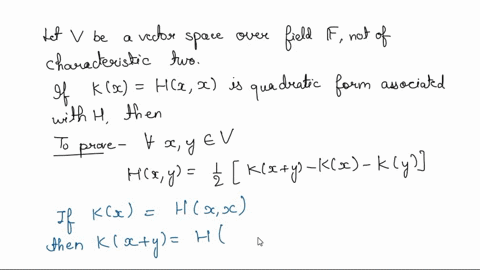 Let V be a vector space over field F, not of
characteristic two.
If K(x) = H(x,x) is quadratic form associated
with H, then
To prove - ∀ x,y ∈ V
H(x,y) = 1/2 [ K(x+y) - K(x) - K(y) ]
If K(x) = H(x,x)
then K(x+y) = H (